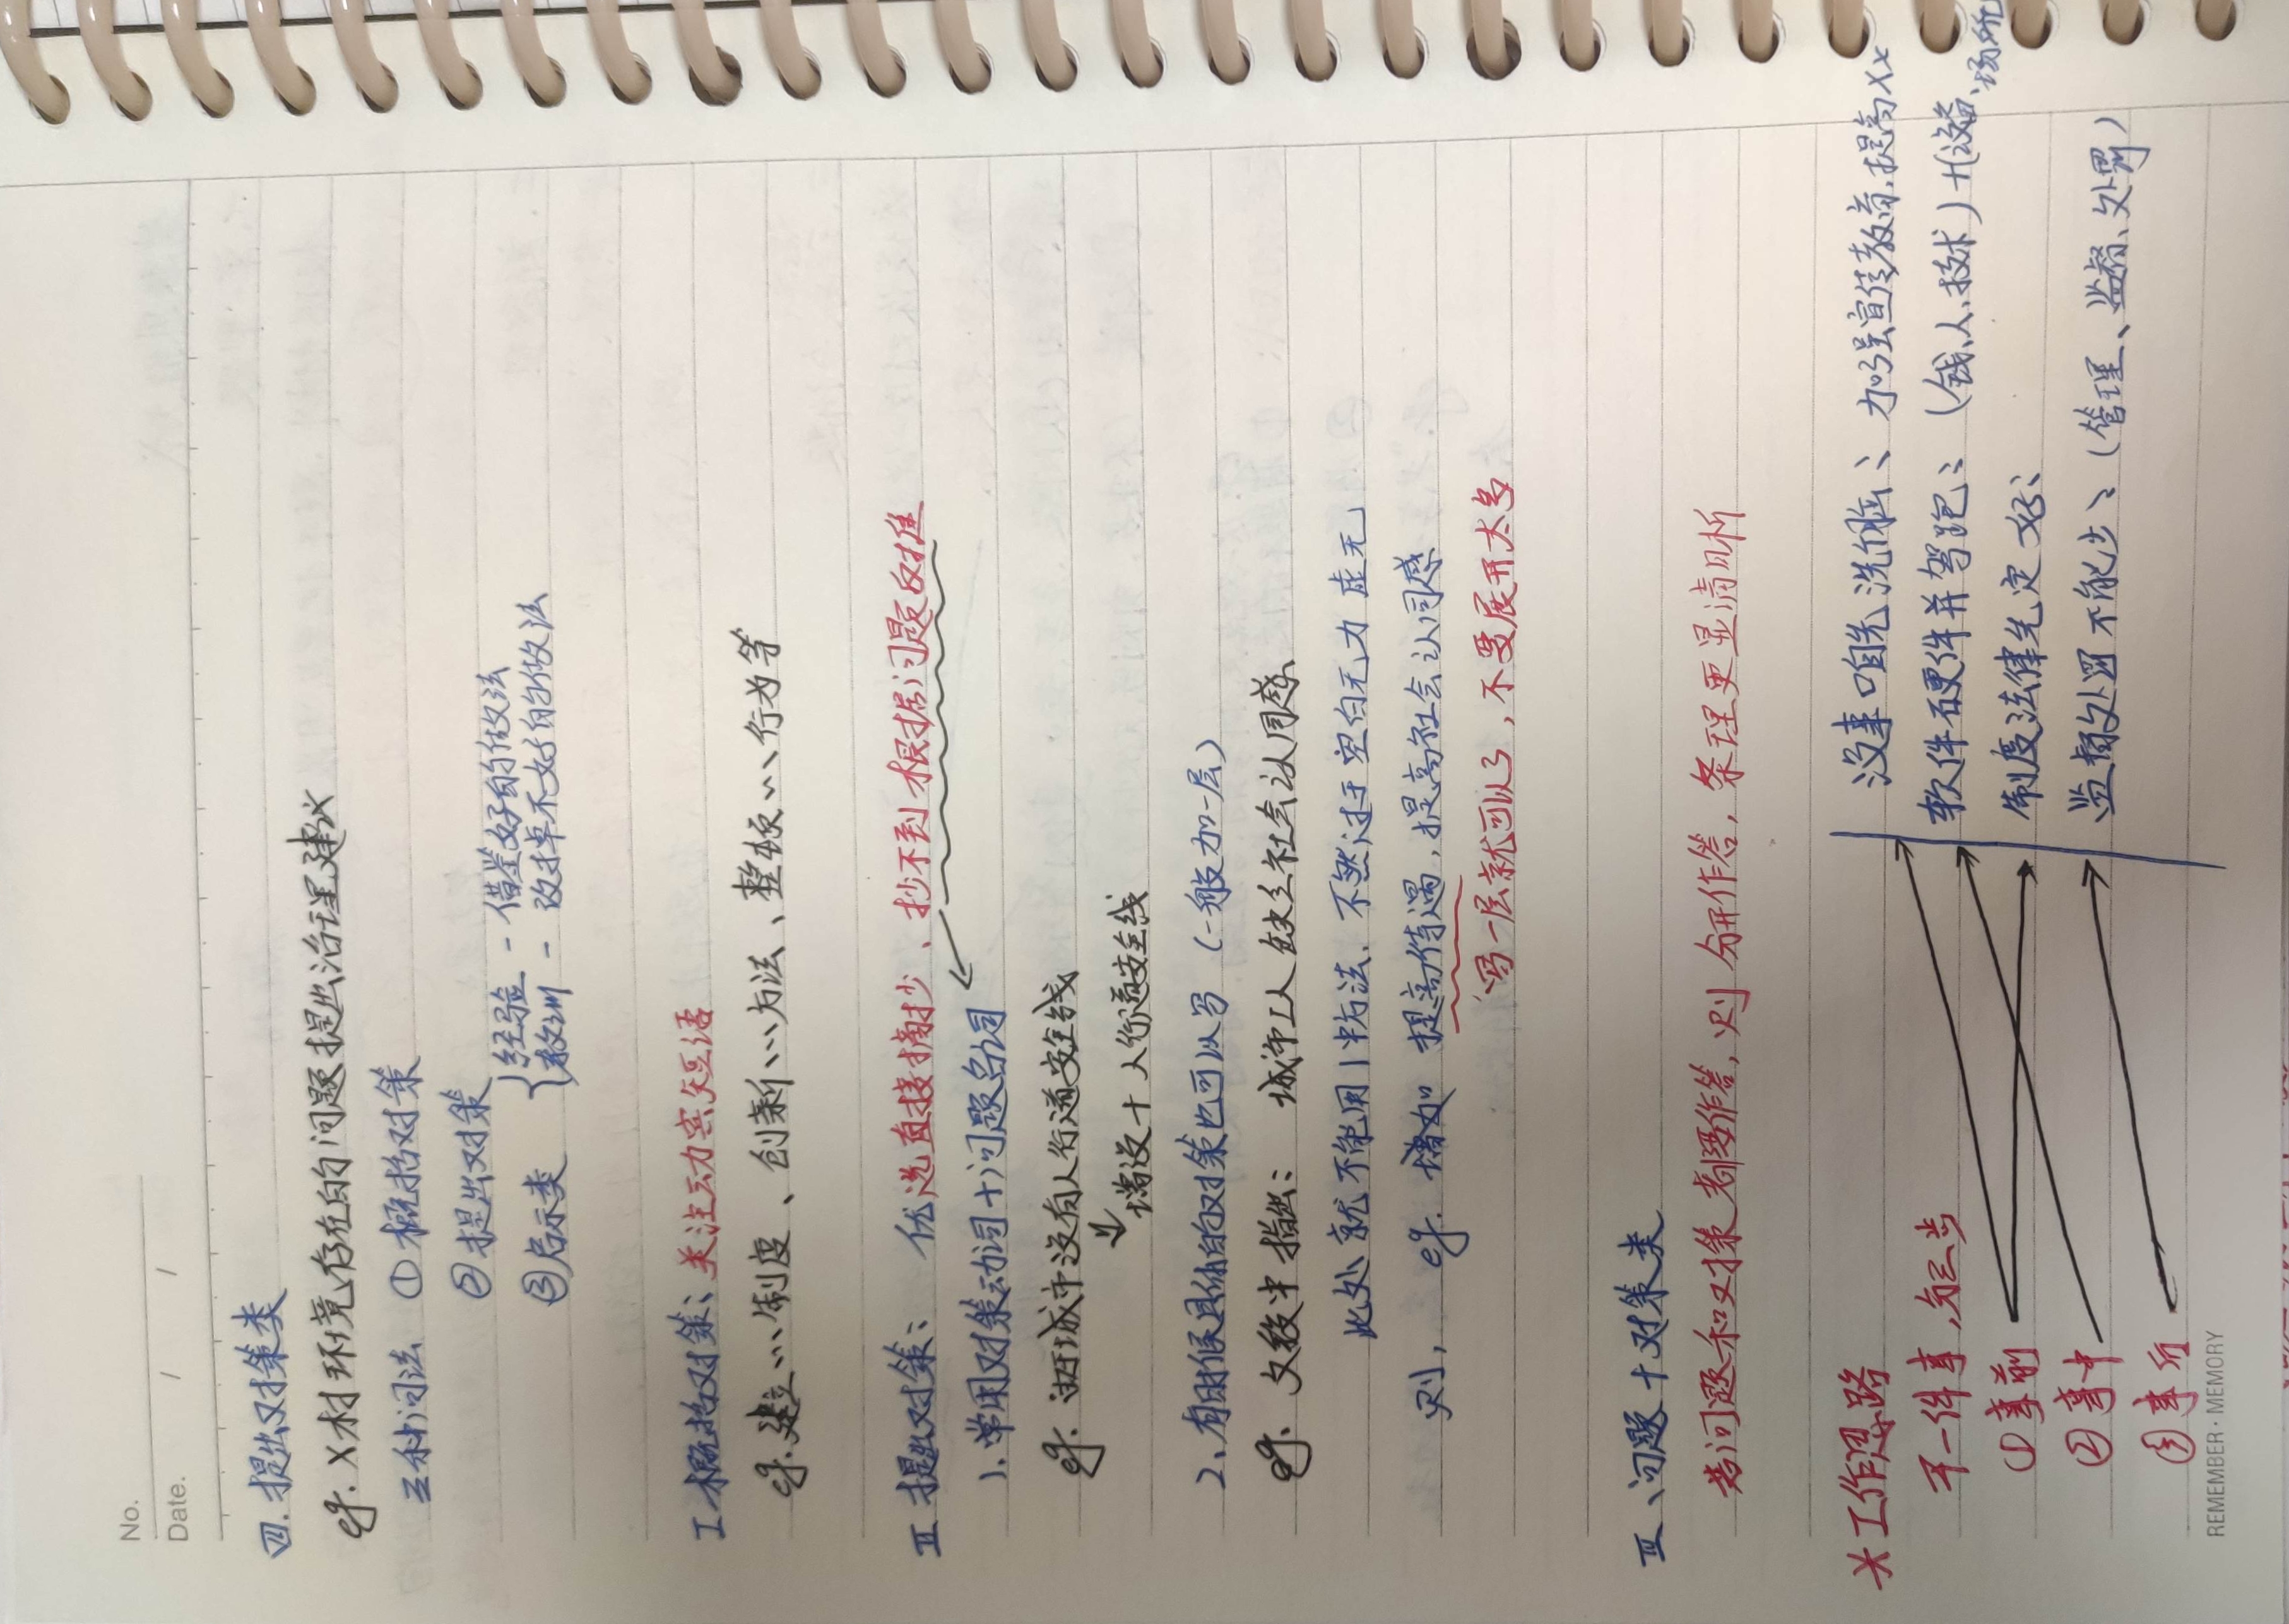 No.
Date. / /
四.提出对策类
eg. X村环境存在的问题提出治理建议
三种问法 ①概括对策
②提出对策
③启示类 { 经验 - 借鉴好的做法
教训 - 改掉不好的做法
I 概括对策：关注动宾短语
eg.建立…制度、创新…方法、整顿…行为等
II 提出对策： 优选直接摘抄、抄不到根据问题反推
1.常用对策动词+问题名词
eg. 由于城市没有人行道安全线
增设+人行道安全线
2、有时候具体的对策也可以写（一般加一层）
eg. 文段中指出： 城市工人缺乏社会认同感
此处就不能用1中方法.不然过于空白无力虚无
则, eg. 增加 提高待遇,提高社会认同感
写一层就可以了,不要展开太多
III、问题+对策类
若问题和对策都要作答,则分开作答,条理更显清晰
*工作思路
干一件事,分三步
①事前
②事中
③事后
没事咱先洗脑：加强宣传教育.提高xx
软件硬件并驾跑：（钱、人、技术）+（设备、场所
制度法律先定好：
监督处罚不能少：（管理、监督、处罚）
REMEMBER·MEMORY